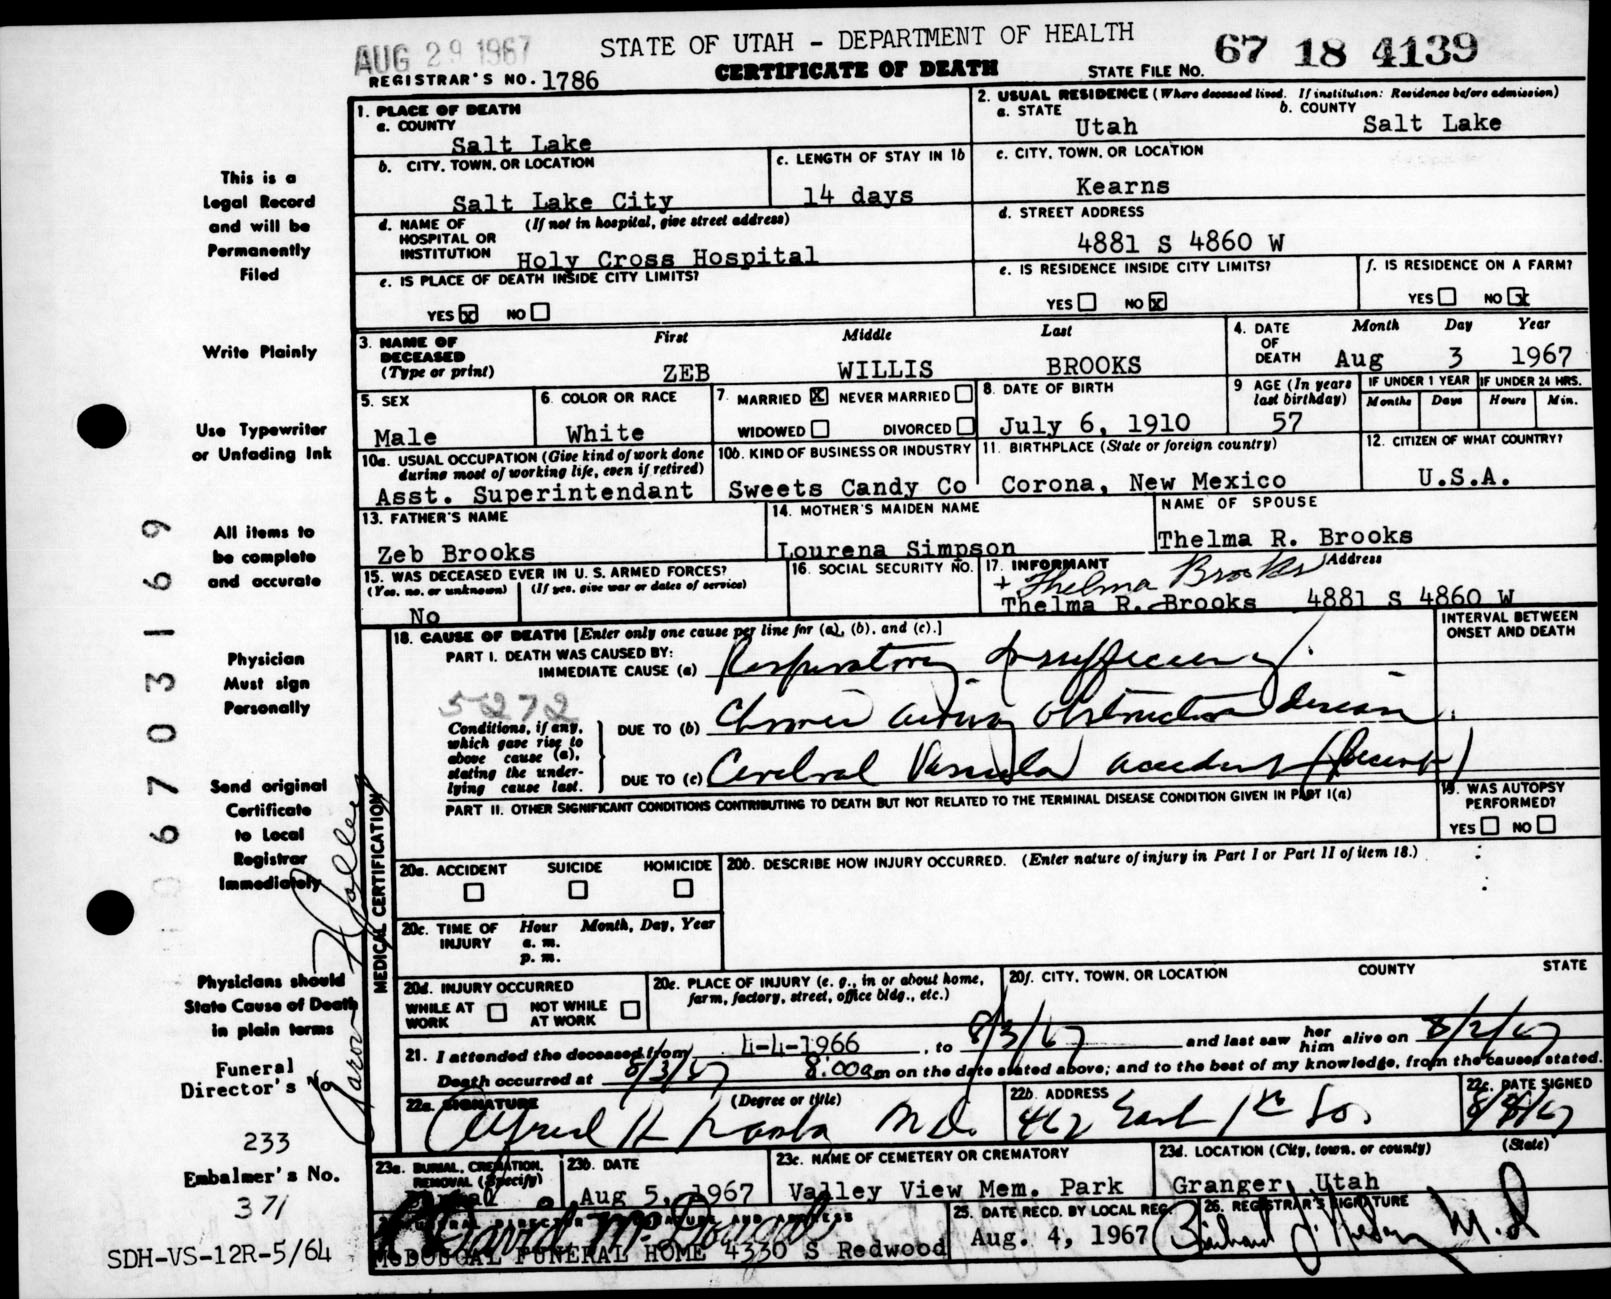 AUG 29 1967
STATE OF UTAH - DEPARTMENT OF HEALTH
67 18 4139
REGISTRAR'S NO. 1786
CERTIFICATE OF DEATH
STATE FILE NO.
1. PLACE OF DEATH
a. COUNTY
Salt Lake
2. USUAL RESIDENCE (Where deceased lived. If institution: Residence before admission)
a. STATE
Utah
b. COUNTY
Salt Lake
b. CITY, TOWN, OR LOCATION
Salt Lake City
c. LENGTH OF STAY IN 1b
14 days
c. CITY, TOWN, OR LOCATION
Kearns
d. NAME OF HOSPITAL OR INSTITUTION
(If not in hospital, give street address)
Holy Cross Hospital
d. STREET ADDRESS
4881 S 4860 W
e. IS PLACE OF DEATH INSIDE CITY LIMITS?
YES x NO
e. IS RESIDENCE INSIDE CITY LIMITS?
YES NO x
f. IS RESIDENCE ON A FARM?
YES NO x
3. NAME OF DECEASED (Type or print)
First Middle Last
ZEB WILLIS BROOKS
4. DATE OF DEATH
Month Day Year
Aug 3 1967
5. SEX
Male
6. COLOR OR RACE
White
7. MARRIED X NEVER MARRIED
WIDOWED DIVORCED
8. DATE OF BIRTH
July 6, 1910
9 AGE (In years last birthday)
57
IF UNDER 1 YEAR
Months Days
IF UNDER 24 HRS.
Hours Min.
10a. USUAL OCCUPATION (Give kind of work done during most of working life, even if retired)
Asst. Superintendant
10b. KIND OF BUSINESS OR INDUSTRY
Sweets Candy Co
11. BIRTHPLACE (State or foreign country)
Corona, New Mexico
12. CITIZEN OF WHAT COUNTRY?
U.S.A.
13. FATHER'S NAME
Zeb Brooks
14. MOTHER'S MAIDEN NAME
Lourena Simpson
NAME OF SPOUSE
Thelma R. Brooks
15. WAS DECEASED EVER IN U. S. ARMED FORCES?
(Yes, no, or unknown) (If yes, give war or dates of service)
No
16. SOCIAL SECURITY NO.
17. INFORMANT Address
+ Thelma Brooks
Thelma R. Brooks 4881 S 4860 W
MEDICAL CERTIFICATION
18. CAUSE OF DEATH [Enter only one cause per line for (a), (b), and (c).]
INTERVAL BETWEEN ONSET AND DEATH
PART I. DEATH WAS CAUSED BY:
IMMEDIATE CAUSE (a) Respiratory Insufficiency
5272
Conditions, if any, which gave rise to above cause (a), stating the underlying cause last.
DUE TO (b) Chronic airway obstruction disease
DUE TO (c) Cerebral Vascular accident (Recent)
PART II. OTHER SIGNIFICANT CONDITIONS CONTRIBUTING TO DEATH BUT NOT RELATED TO THE TERMINAL DISEASE CONDITION GIVEN IN PART I(a)
19. WAS AUTOPSY PERFORMED?
YES NO
20a. ACCIDENT SUICIDE HOMICIDE
20b. DESCRIBE HOW INJURY OCCURRED. (Enter nature of injury in Part I or Part II of item 18.)
20c. TIME OF INJURY
Hour Month, Day, Year
a. m.
p. m.
20d. INJURY OCCURRED
WHILE AT WORK NOT WHILE AT WORK
20e. PLACE OF INJURY (e. g., in or about home, farm, factory, street, office bldg., etc.)
20f. CITY, TOWN, OR LOCATION COUNTY STATE
21. I attended the deceased from 4-4-1966, to 8/3/67 and last saw her him alive on 8/2/67
Death occurred at 8/3/67 8:00am on the date stated above; and to the best of my knowledge, from the causes stated.
22a. SIGNATURE (Degree or title)
Alfred H M.D.
22b. ADDRESS
462 East 1st So.
22c. DATE SIGNED
8/8/67
23a. BURIAL, CREMATION, REMOVAL (Specify)
Burial
23b. DATE
Aug 5, 1967
23c. NAME OF CEMETERY OR CREMATORY
Valley View Mem. Park
23d. LOCATION (City, town, or county) (State)
Granger, Utah
FUNERAL DIRECTOR SIGNATURE AND ADDRESS
David McDougal
McDOUGAL FUNERAL HOME 4330 S Redwood
25. DATE RECD. BY LOCAL REG.
Aug. 4, 1967
26. REGISTRAR'S SIGNATURE
M.D
This is a
Legal Record
and will be
Permanently
Filed
Write Plainly
Use Typewriter
or Unfading Ink
All items to
be complete
and accurate
Physician
Must sign
Personally
Send original
Certificate
to Local
Registrar
Immediately
Physicians should
State Cause of Death
in plain terms
Funeral
Director's No
233
Embalmer's No.
371
SDH-VS-12R-5/64
06703169